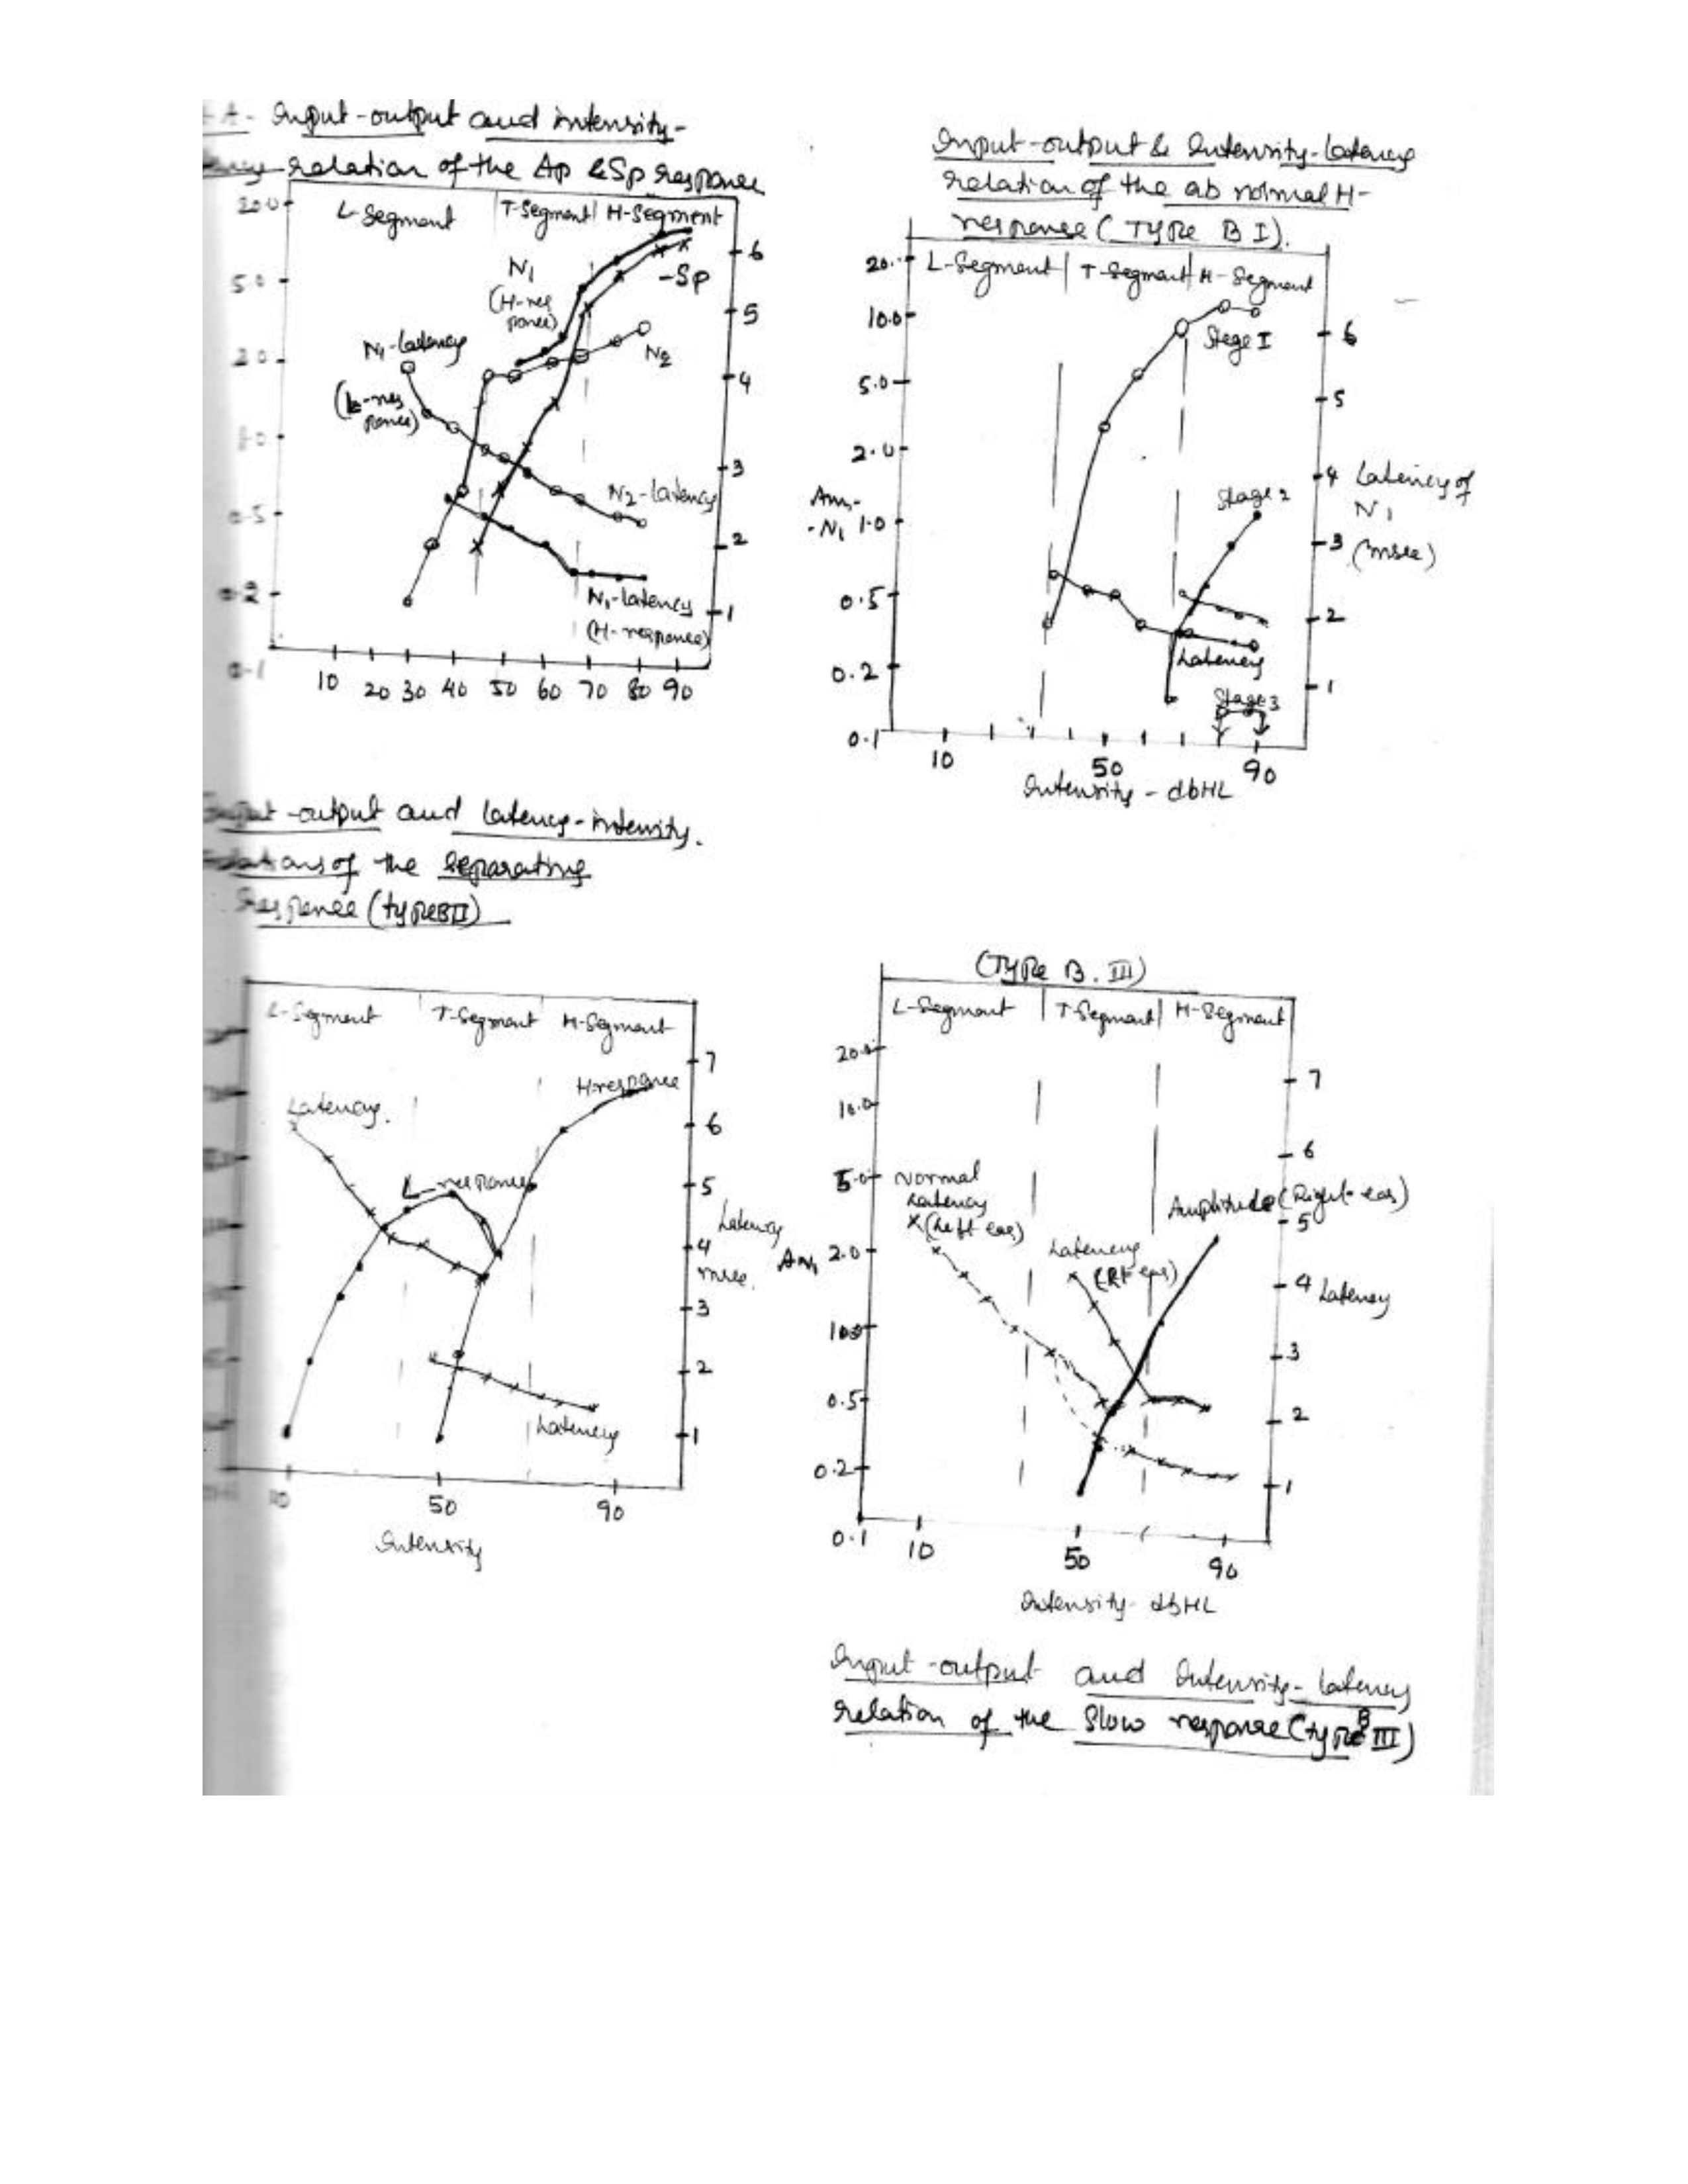 A - Input-output and intensity-
relation of the Ap & Sp response
L-Segment T-Segment H-Segment
N1
(H-res
ponse)
-Sp
N2
N1-Latency
(L-res
ponse)
N2-Latency
N1-latency
(H-response)
20.0
5.0
2.0
1.0
0.5
0.2
0.1
6
5
4
3
2
1
10 20 30 40 50 60 70 80 90
Input-output & Intensity-Latency
relation of the ab normal H-
response (TYPE B I).
L-Segment T-Segment H-Segment
20.
10.0
5.0
2.0
Am-
-N1 1.0
0.5
0.2
0.1
Stage I
Stage 2
Latency
Stage 3
6
5
4 Latency of
N1
3 (msec)
2
1
10 50 90
Intensity - dbHL
Input-output and latency-intensity.
Relations of the Separating
Response (type BII)
L-Segment T-Segment H-Segment
Latency.
H-response
L-response
Latency
7
6
5
Latency
4
msec.
3
2
1
10 50 90
Intensity
(TYPE B. III)
L-Segment T-Segment H-Segment
20.0
10.0
5.0
Am 2.0
10.0
0.5
0.2
0.1
Normal
Latency
X (Left ear)
Latency
(Rt ear)
Amplitude (Right-ear)
7
6
5
4 Latency
3
2
1
10 50 90
Intensity- dbHL
Input-output and Intensity-latency
relation of the Slow response (type B III)